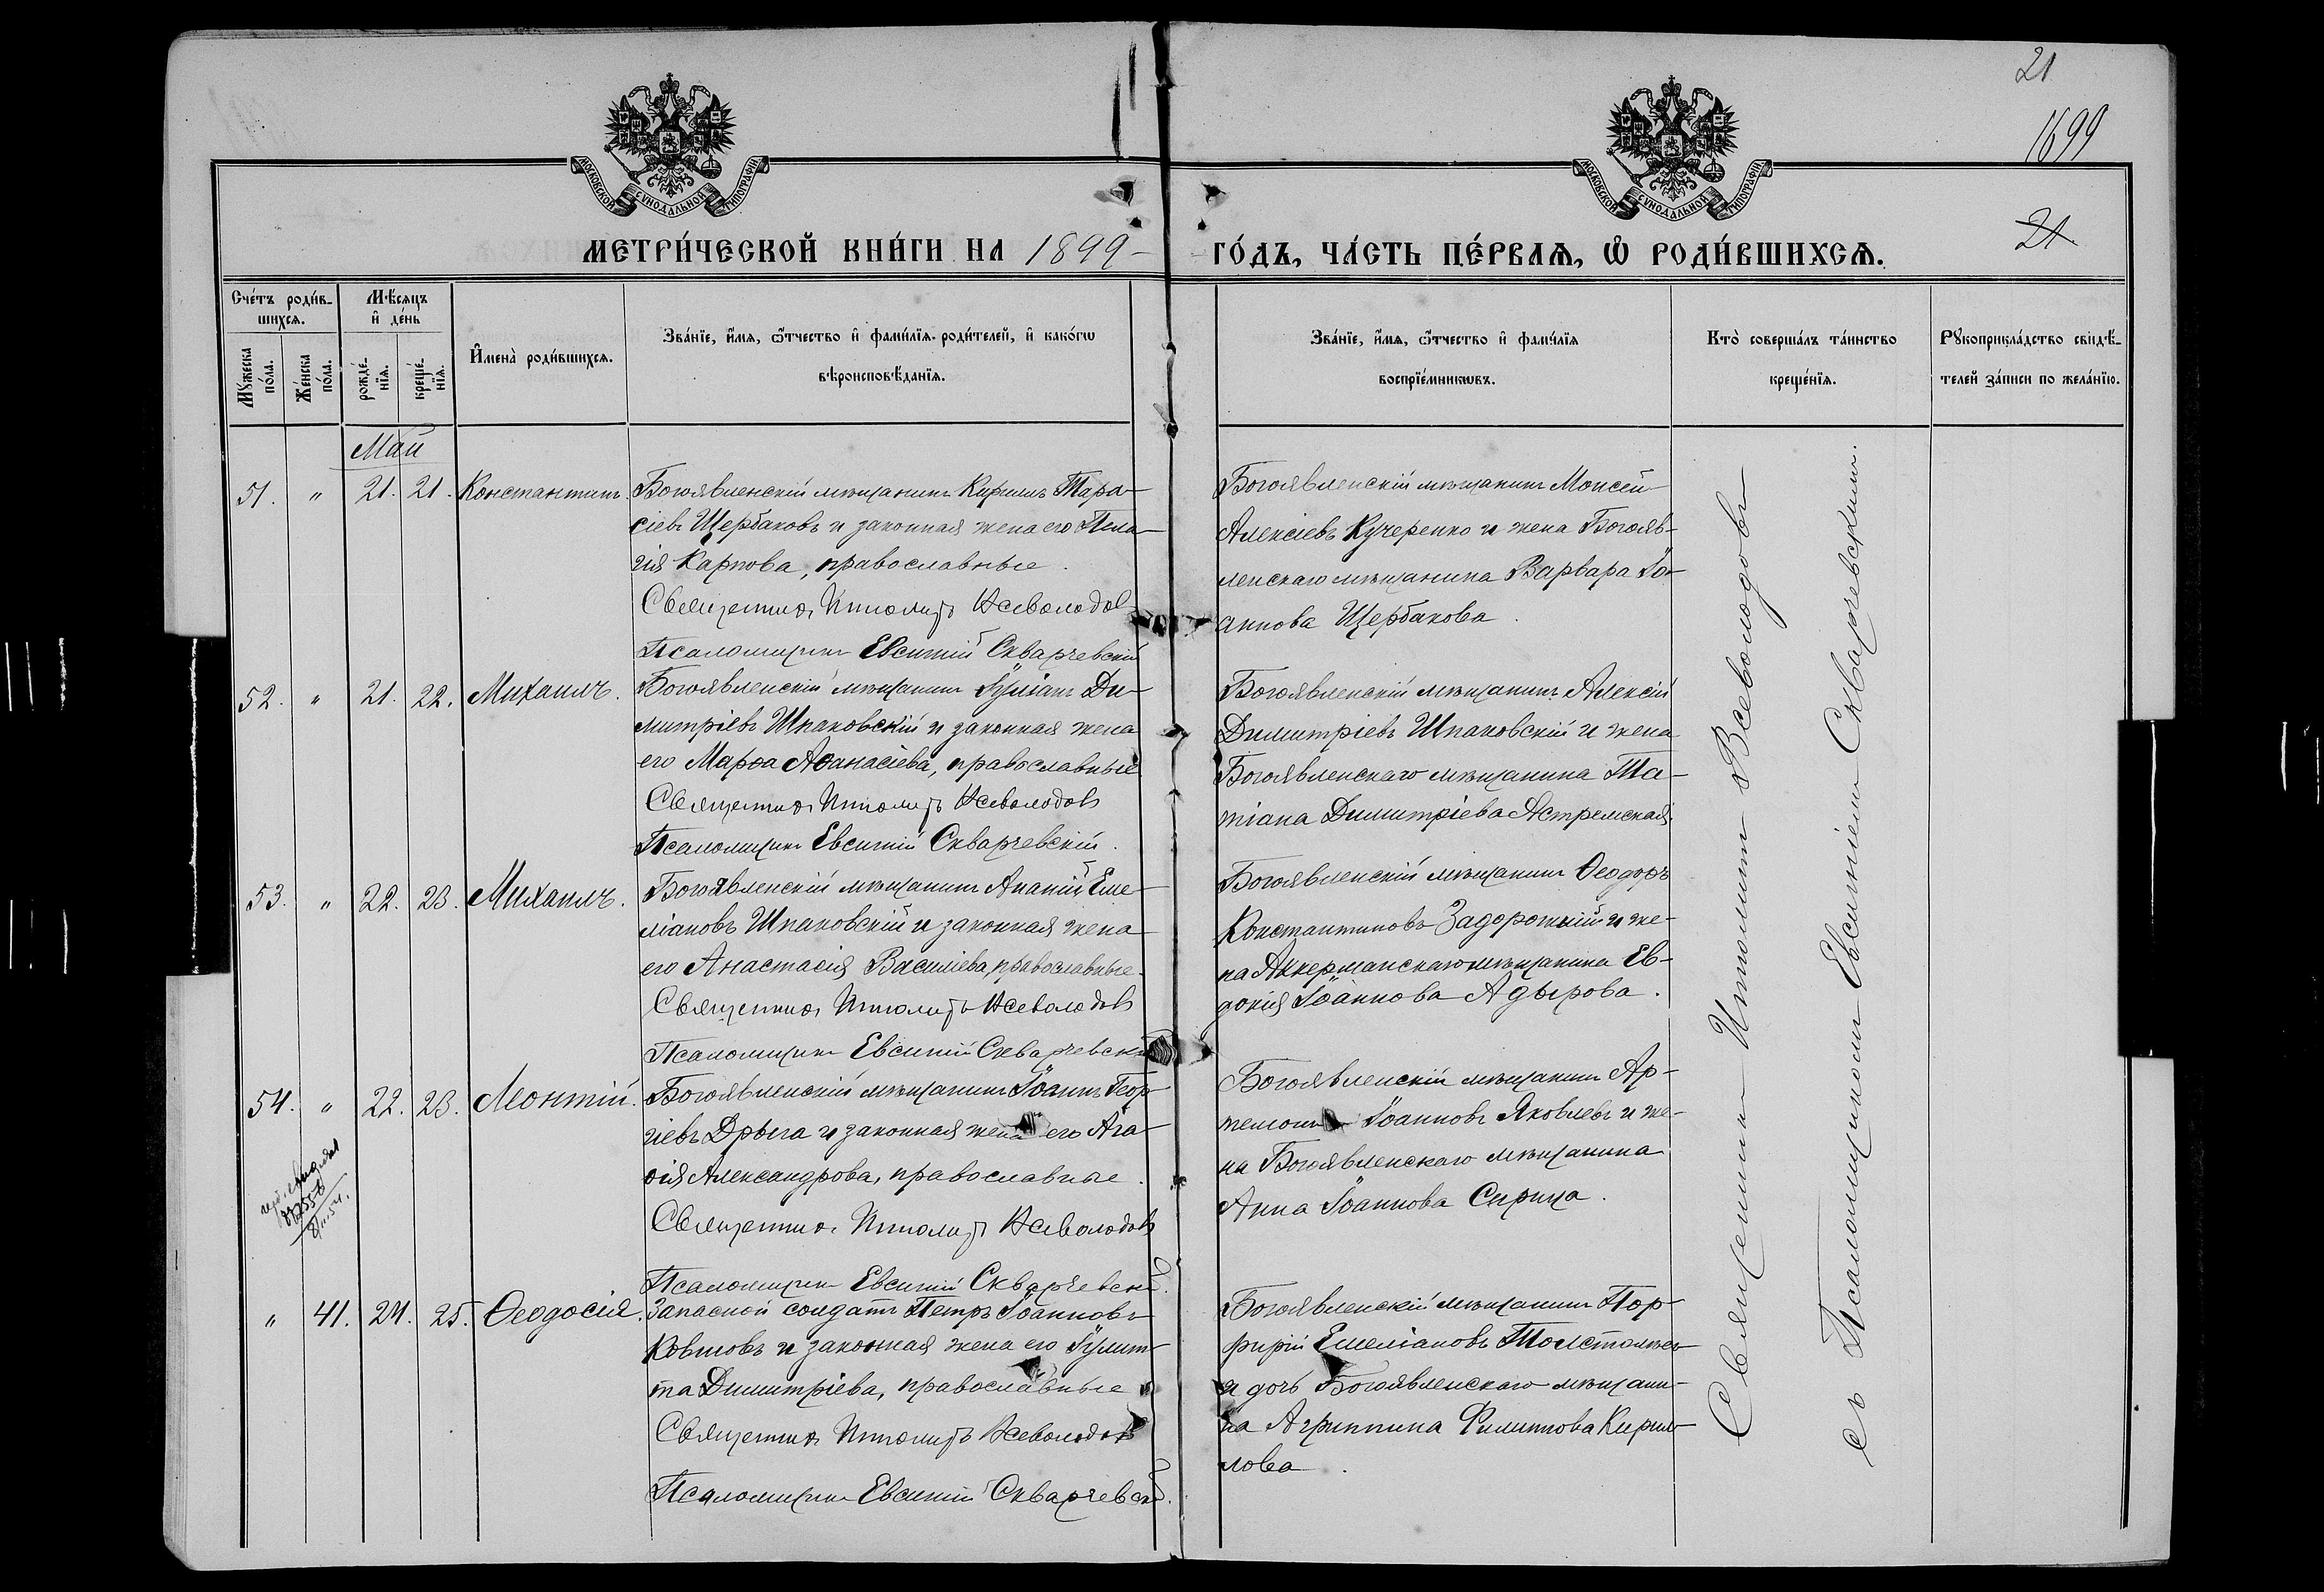 21
1699
МОСКОВСКОЙ СѴНОДАЛЬНОЙ ТИПОГРАФІИ
МОСКОВСКОЙ СѴНОДАЛЬНОЙ ТИПОГРАФІИ
21
МЕТРИ́ЧЕСКОЙ КНИ́ГИ НА 1899 ГО́ДЪ, ЧА́СТЬ ПЕ́РВАѦ, Ѡ҆ РОДИ́ВШИХСѦ.
Сче́тъ роди́в-
шихсѧ.
Мꙋ́жеска по́ла.
Же́нска по́ла.
Мѣ́сѧцъ
и҆ де́нь
рожде́-нїѧ.
креще́-нїѧ.
И҆мена̀ роди́вшихсѧ.
Зва́нїе, и҆́мѧ, ѻ҆́тчество и҆ фами́лїѧ роди́телей, и҆ како́гѡ
вѣроисповѣ́данїѧ.
Зва́нїе, и҆́мѧ, ѻ҆́тчество и҆ фами́лїѧ
воспрїе́мникѡвъ.
Кто̀ соверша́лъ та́инство
креще́нїѧ.
Рꙋкоприкла́дство свидѣ́-
телей за́писи по жела́нїю.
Май
51. " 21. 21. Константинъ.
Богоявленскій мѣщанинъ Кириллъ Тара-
сіевъ Щербаковъ и законная жена его Пела-
гія Карпова, православные.
Священникъ Ипполитъ Всеволодов
Псаломщикъ Евсигній Скварчевскій
Богоявленскій мѣщанинъ Моисей
Алексіевъ Кучеренко и жена Богояв-
ленскаго мѣщанина Варвара Іо-
аннова Щербакова.
52. " 21. 22. Михаилъ.
Богоявленскій мѣщанинъ Іуліанъ Ди-
митріевъ Шпаковскій и законная жена
его Марѳа Аѳанасіева, православные
Священникъ Ипполитъ Всеволодовъ
Псаломщикъ Евсигній Скварчевскій.
Богоявленскій мѣщанинъ Алексій
Димитріевъ Шпаковскій и жена
Богоявленскаго мѣщанина Та-
тіана Димитріева Ястремская
53. " 22. 23. Михаилъ.
Богоявленскій мѣщанинъ Ананій Еме-
ліановъ Шпаковскій и законная жена
его Анастасія Василіева, православные.
Священникъ Ипполитъ Всеволодовъ
Псаломщикъ Евсигній Скварчевскій
Богоявленскій мѣщанинъ Ѳеодоръ
Константиновъ Задорожній и же-
на Аккерманскаго мѣщанина Ев-
докія Іоаннова Адырова.
54. " 22. 23. Леонтій.
Богоявленскій мѣщанинъ Іоаннъ Геор-
гіевъ Дрыга и законная жена его Ага-
ѳія Александрова, православные.
Священникъ Ипполитъ Всеволодовъ
Псаломщикъ Евсигній Скварчевскій.
Богоявленскій мѣщанинъ Ар-
темонъ Іоанновъ Яковлевъ и же-
на Богоявленскаго мѣщанина
Анна Іоаннова Сирица.
" 41. 24. 25. Ѳеодосія.
Запасной солдатъ Петръ Іоанновъ
Ковтовъ и законная жена его Іулит-
та Димитріева, православные
Священникъ Ипполитъ Всеволодовъ
Псаломщикъ Евсигній Скварчевскій.
Богоявленскій мѣщанинъ Пор-
фирій Емеліановъ
и дочь Богоявленскаго мѣщани-
на Агриппина Филиппова Кирил-
лова.
Священникъ Ипполитъ Всеволодовъ
съ Псаломщикомъ Евсигніемъ Скварчевскимъ.